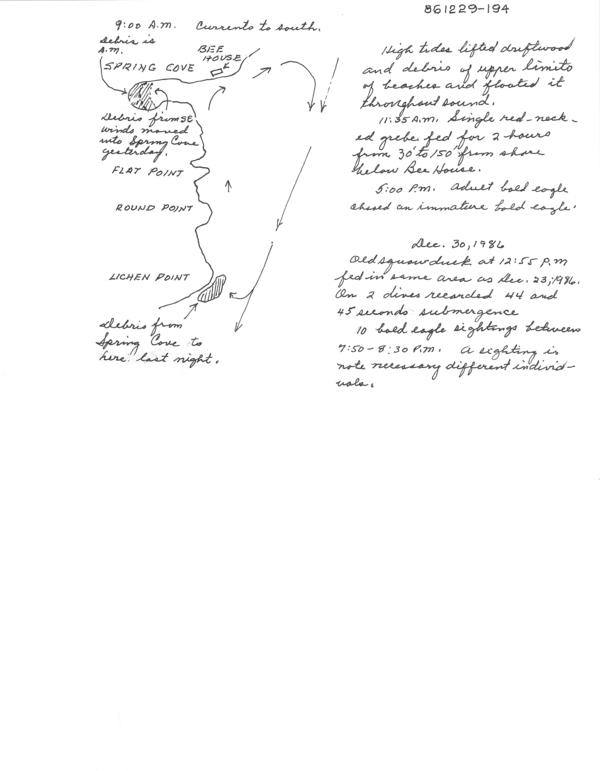 861229-194
9:00 A.M. Currents to south.
Debris is
A.M.
BEE
HOUSE
SPRING COVE
Debris from SE
winds moved
into Spring Cove
yesterday.
FLAT POINT
ROUND POINT
LICHEN POINT
Debris from
Spring Cove to
here last night.
High tides lifted driftwood
and debris of upper limits
of beaches and floated it
throughout sound.
11:35 A.M. Single red-neck-
ed grebe fed for 2 hours
from 30' to 150' from shore
below Bee House.
5:00 P.M. Adult bald eagle
chased an immature bald eagle.
Dec. 30, 1986
Oldsquaw duck at 12:55 P.M
fed in same area as Dec. 23, 1986.
On 2 dives recorded 44 and
45 seconds submergence
10 bald eagle sightings between
7:50-8:30 P.M. A sighting is
note necessary different individ-
uals.